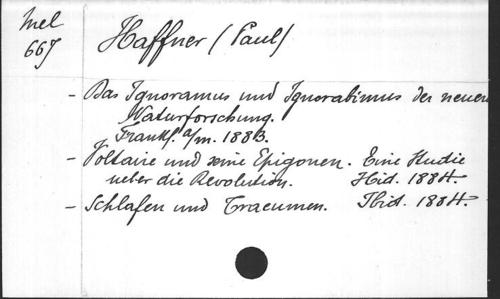 Mel
667
Haffner (Paul)
- Das Ignoramus und Ignorabimus der neuern
Naturforschung.
Frankf. a/m. 1883.
- Voltaire und seine Epigonen. Eine Studie
ueber die Revolution. Ibid. 1884.
- Schlafen und Traeumen. Ibid. 1884.